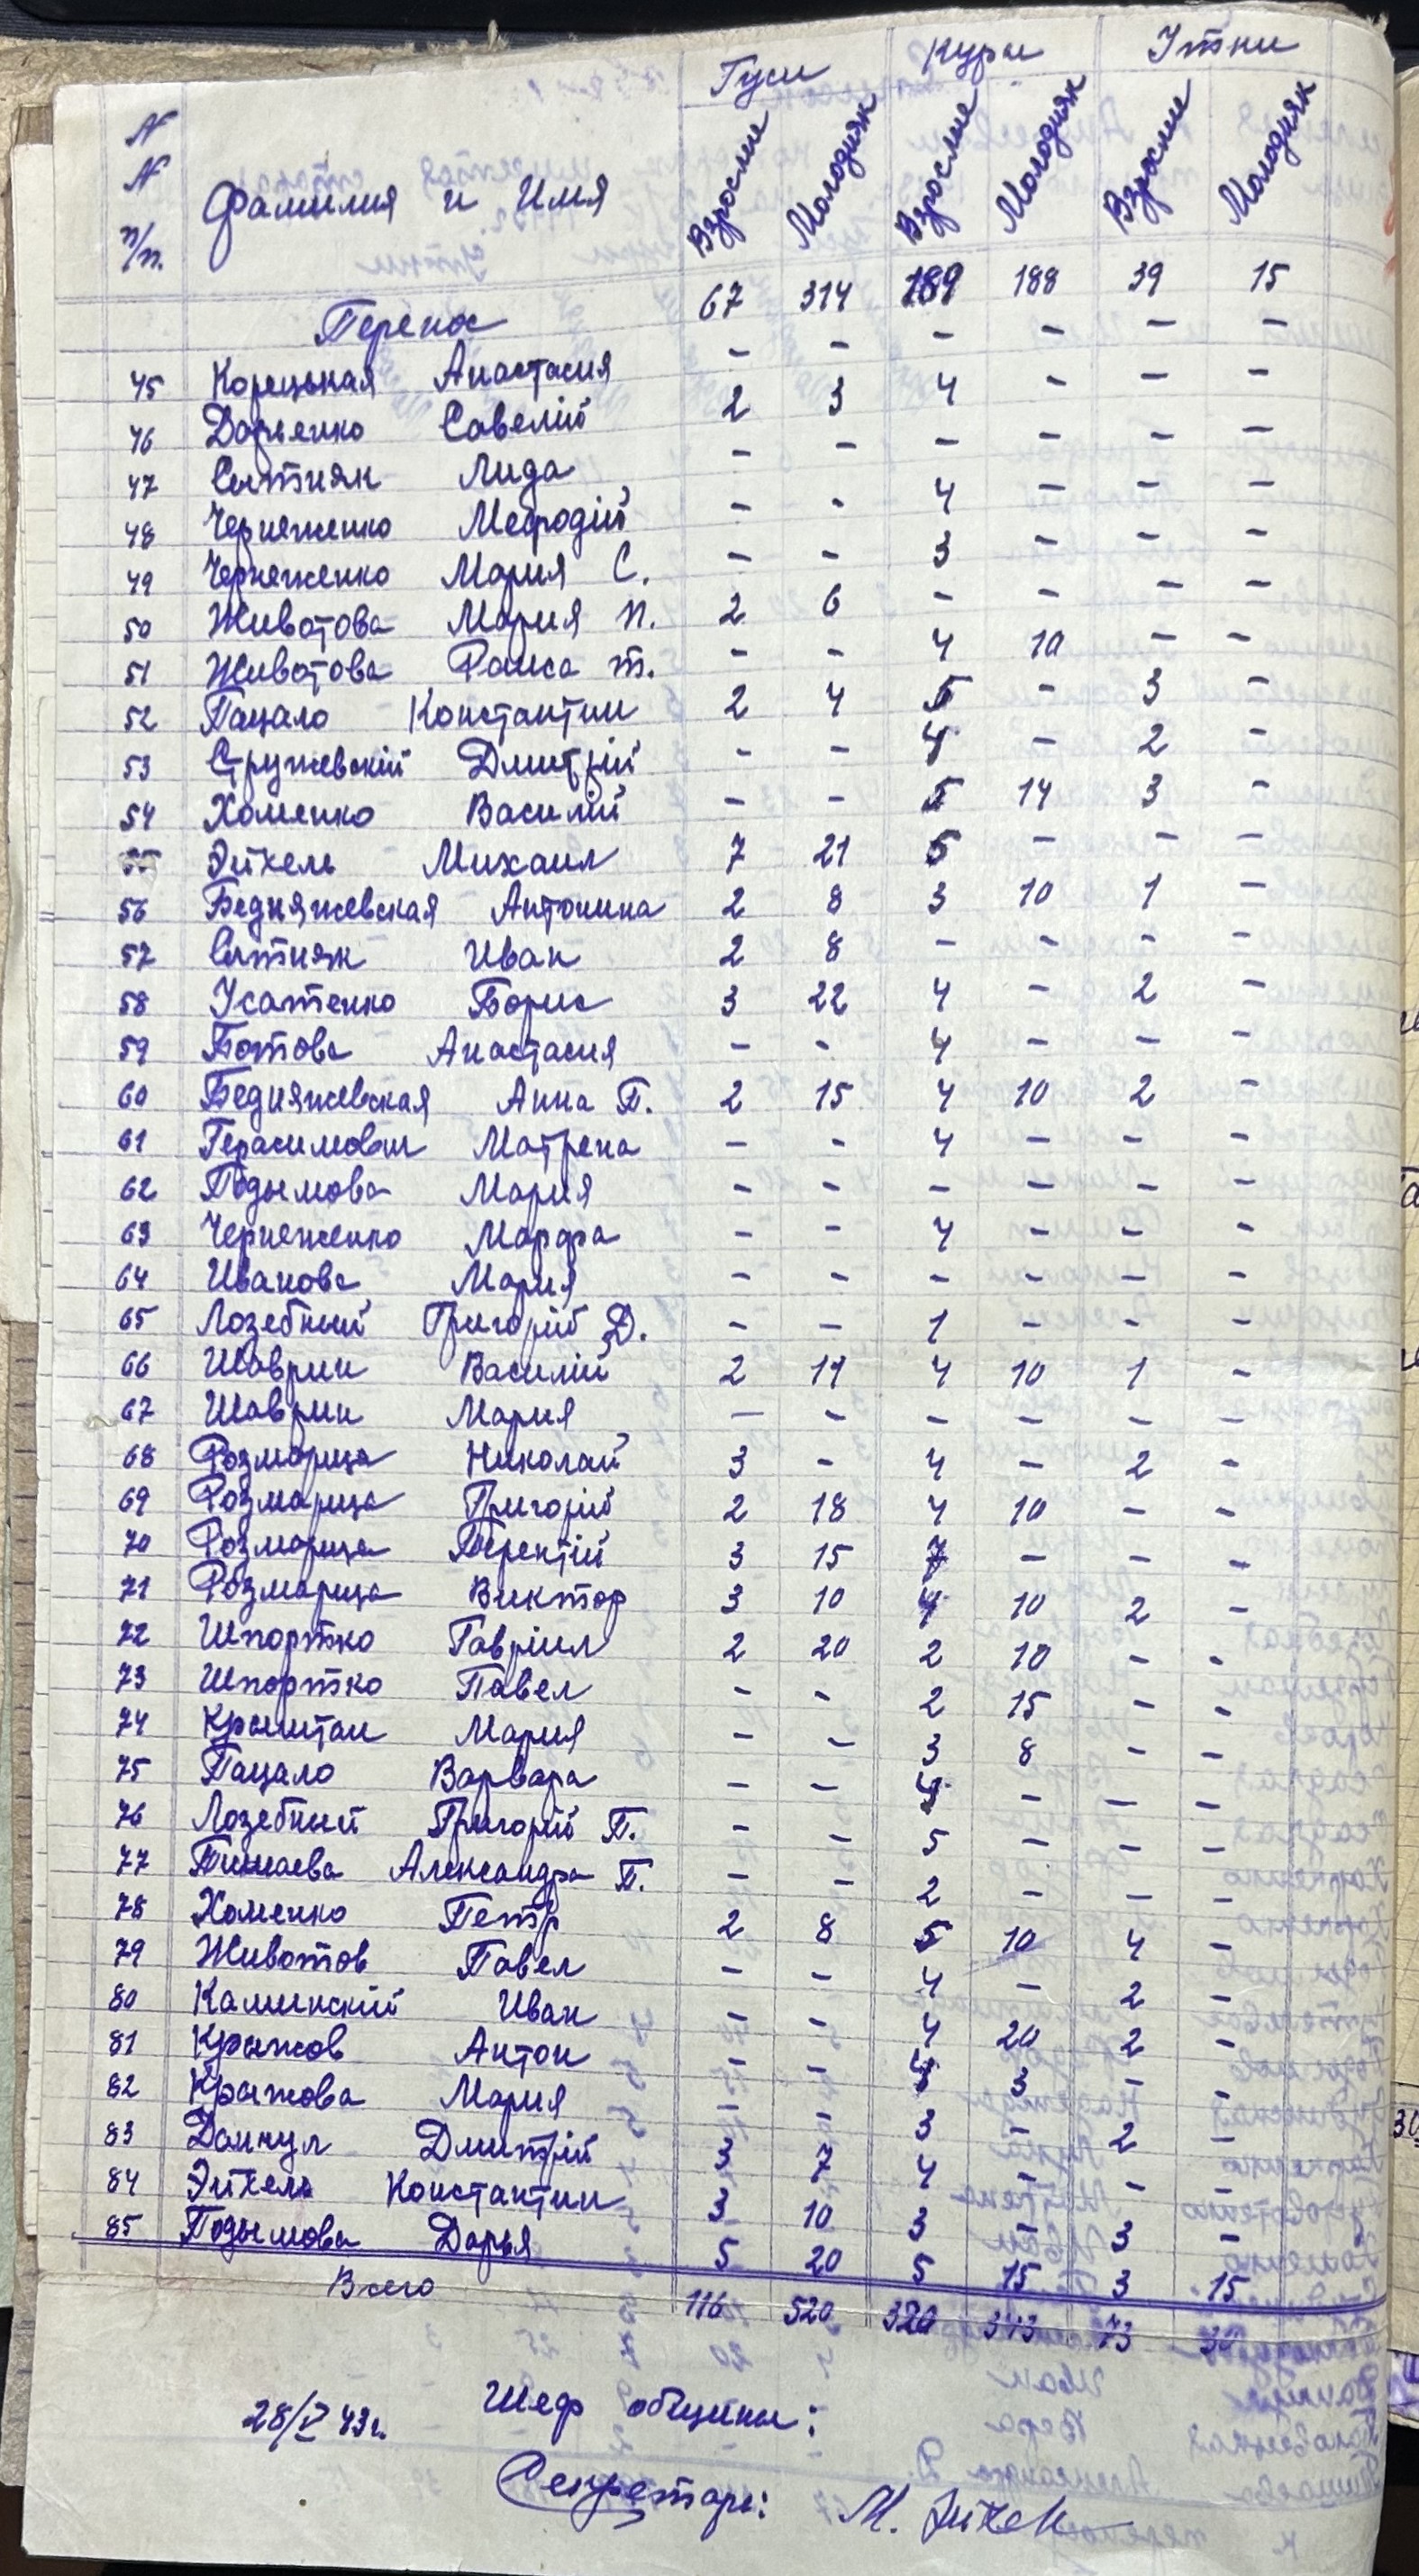 Гуси Куры Утки
N N п/п. Фамилия и Имя Взрослые Молодняк Взрослые Молодняк Взрослые Молодняк
Перенос 67 314 189 188 39 15
45 Корецькая Анастасия - - - - - -
46 Дорьенко Савелій 2 3 4 - - -
47 Сытняк Лида - - - - - -
48 Черненченко Мефодій - - 4 - - -
49 Черненченко Мария С. - - 3 - - -
50 Животова Мария П. 2 6 - - - -
51 Животова Раиса т. - - 4 10 - -
52 Пацало Константин 2 4 5 - 3 -
53 Стружевскій Дмитрій - - 4 - 2 -
54 Хоменко Василій - - 5 14 3 -
55 Эйхель Михаил 7 21 5 - - -
56 Бедняжевская Антонина 2 8 3 10 1 -
57 Сытняк Иван 2 8 - - - -
58 Усатенко Борис 3 22 4 - 2 -
59 Ботова Анастасия - - 4 - - -
60 Бедняжевская Анна П. 2 15 4 10 2 -
61 Герасимович Матрена - - 4 - - -
62 Подымова Мария - - - - - -
63 Черненченко Марфа - - 4 - - -
64 Иванова Мария - - - - - -
65 Лозебный Григорій Д. - - 1 - - -
66 Шаврин Василій 2 11 4 10 1 -
67 Шаврин Мария - - - - - -
68 Розмарица Николай 3 - 4 - 2 -
69 Розмарица Григорій 2 18 4 10 - -
70 Розмарица Терентій 3 15 7 - - -
71 Розмарица Виктор 3 10 4 10 2 -
72 Шпортко Гавріил 2 20 2 10 - -
73 Шпортко Павел - - 2 15 - -
74 Крыштан Мария - - 3 8 - -
75 Пацало Варвара - - 4 - - -
76 Лозебный Григорій П. - - 5 - - -
77 Тишаева Александра П. - - 2 - - -
78 Хоменко Петр 2 8 5 10 4 -
79 Животов Павел - - 4 - 2 -
80 Каминскій Иван - - 4 20 2 -
81 Крыжов Антон - - 4 3 - -
82 Крыжова Мария - - 3 - 2 -
83 Донкул Дмитрій 3 7 4 - - -
84 Эйхель Константин 3 10 3 - 3 -
85 Подымова Дарья 5 20 5 15 3 15
Всего 116 520 320 343 73 30
28/V 43г. Шеф общины:
Секретарь: М. Эйхель